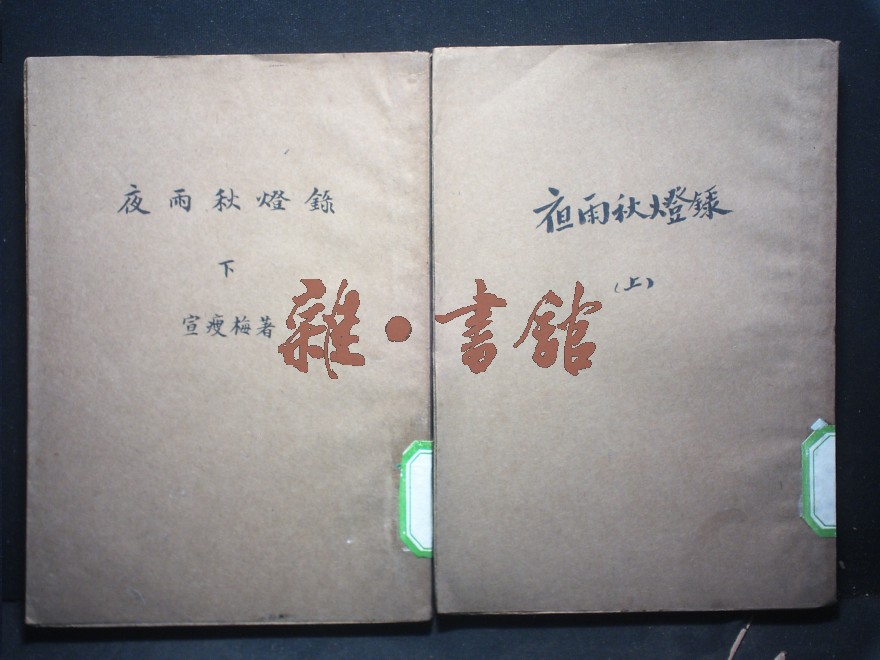 夜雨秋燈錄
下
宣瘦梅著
夜雨秋燈錄
(上)
雜·書館